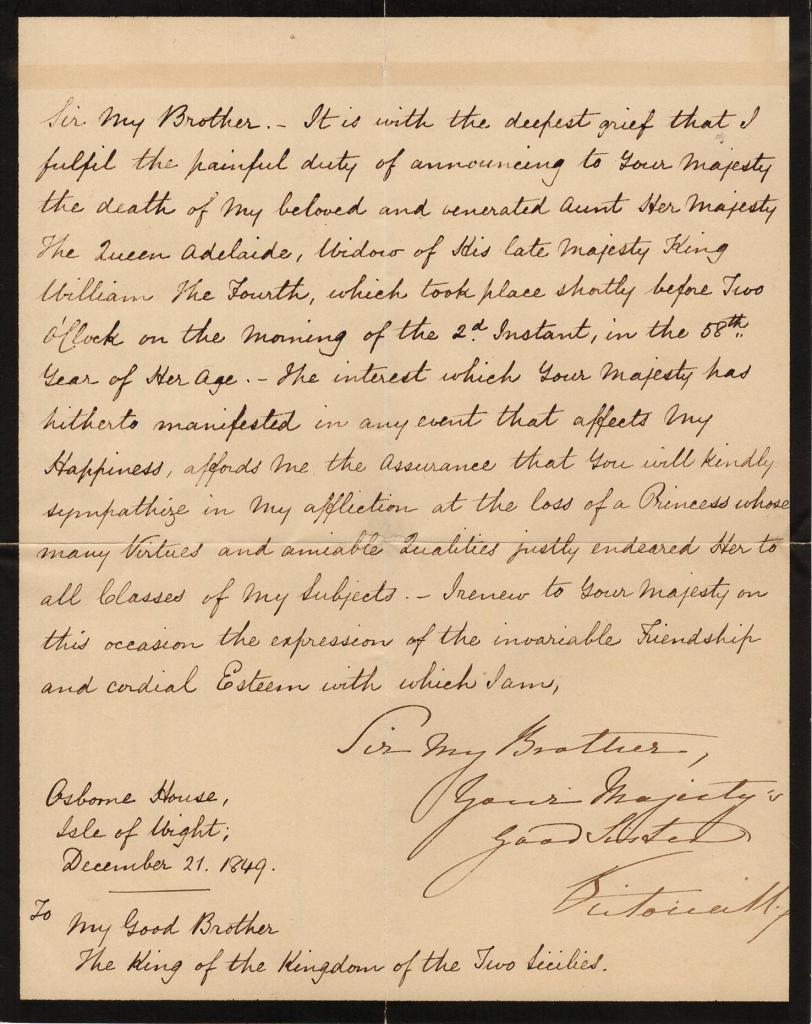 Sir My Brother. - It is with the deepest grief that I
fulfil the painful duty of announcing to Your Majesty
the death of My beloved and venerated Aunt Her Majesty
The Queen Adelaide, Widow of His late Majesty King
William The Fourth, which took place shortly before Two
o'Clock on the Morning of the 2d. Instant, in the 58th.
Year of Her Age. - The interest which Your Majesty has
hitherto manifested in any event that affects My
Happiness, affords Me the Assurance that You will kindly
sympathize in My affliction at the loss of a Princess whose
many Virtues and amiable Qualities justly endeared Her to
all Classes of My Subjects. - I renew to Your Majesty on
this occasion the expression of the invariable Friendship
and cordial Esteem with which I am,
Sir My Brother,
Your Majesty's
Good Sister
Victoria R
Osborne House,
Isle of Wight;
December 21. 1849.
To My Good Brother
The King of the Kingdom of the Two Sicilies.